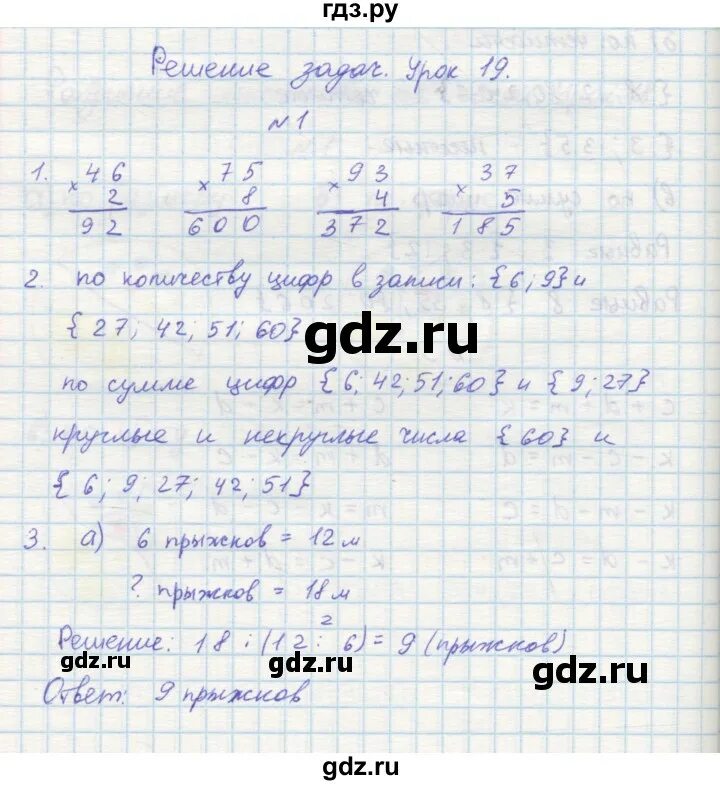 гдз.ру
Решение задач. Урок 19.
№1
1. × 46 × 75 × 93 × 37
2 8 4 5
92 600 372 185
2. по количеству цифр в записи: {6; 9} и
{27; 42; 51; 60}
gdz.ru
по сумме цифр {6; 42; 51; 60} и {9; 27}
круглые и некруглые числа {60} и
{6; 9; 27; 42; 51}
3. а) 6 прыжков = 12 м
? прыжков = 18 м
2
Решение: 18 : (12 : 6) = 9 (прыжков)
gdz.ru
gdz.ru
Ответ: 9 прыжков
gdz.ru